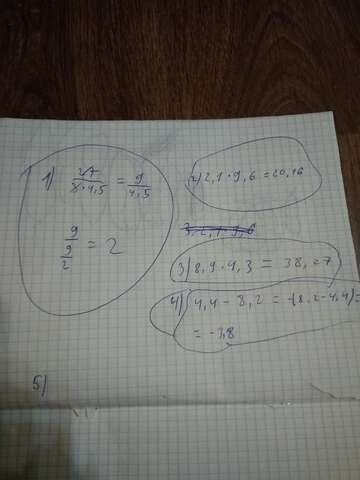 1) 27 / 3 · 4,5 = 9 / 4,5
9 / 9 / 2 = 2
2) 2,1 · 9,6 = 20,16
3) 8,9 · 4,3 = 38,27
4) 4,4 - 8,2 = -(8,2 - 4,4) =
= -3,8
5)